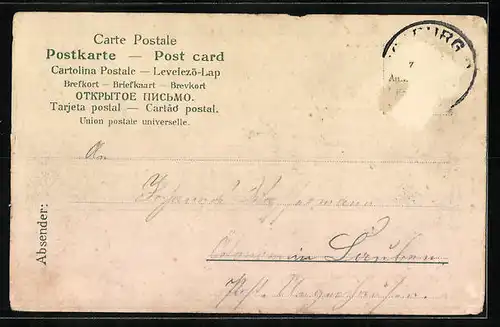 Carte Postale
Postkarte — Post card
Cartolina Postale — Levelező-Lap
Brefkort — Briefkaart — Brevkort
ОТКРЫТОЕ ПИСЬМО.
Tarjeta postal — Cartâd postal.
Union postale universelle.
BURG
7
An
Absender:
in Lauben
Post